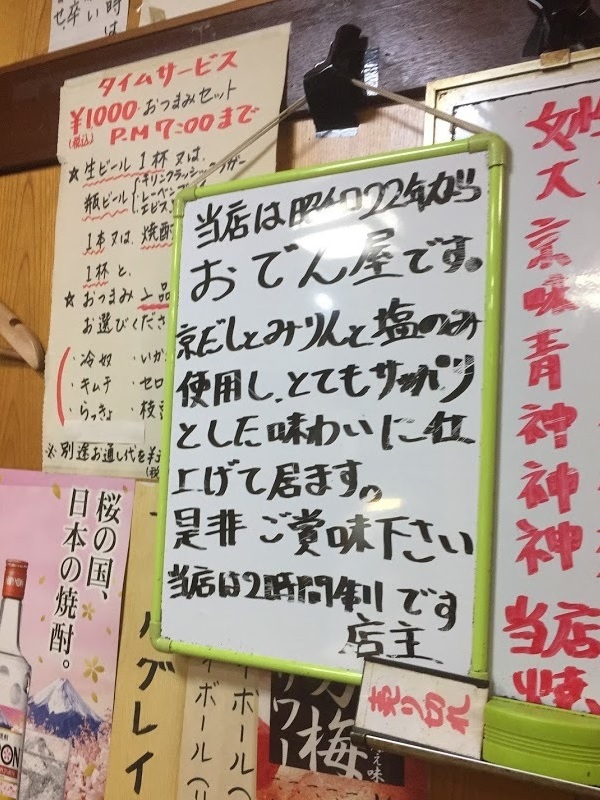 タイムサービス
¥1000
おつまみセット
(税込)
P.M 7:00まで
★生ビール1杯又は、
瓶ビール
キリンクラッシックラガー
1本又は、焼酎
1杯と、
★おつまみ
お選びくださ
・冷奴
・キムチ
・らっきょ
当店は昭和22年から
おでん屋です。
京だしとみりんと塩のみ
使用し、とてもサッパリ
とした味わいに仕
上げて居ます。
是非ご賞味下さい
当店は2時間制です
店主
売り切れ
京
味
青
神
神
神
当店
焼
桜の国、
日本の焼酎。
グレイ
梅
サワー